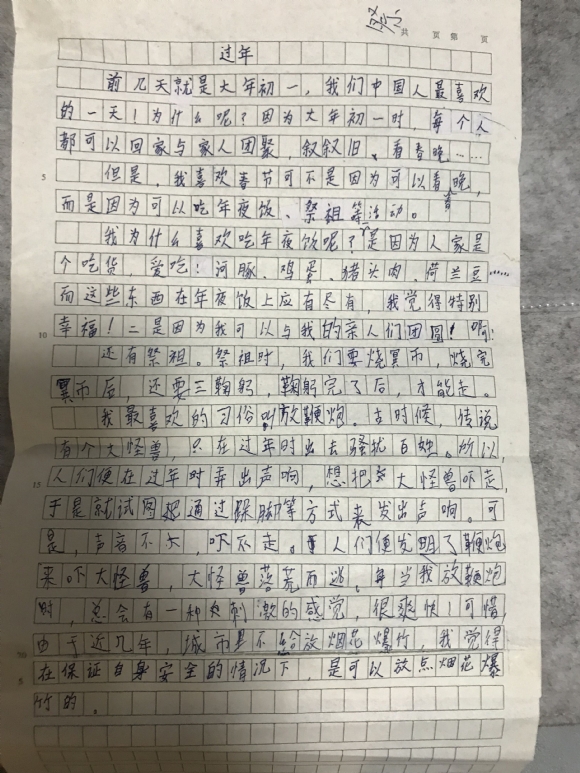 祭
共 页 第 页
过年
前几天就是大年初一,我们中国人最喜欢
的一天!为什么呢?因为大年初一时,每个人
都可以回家与家人团聚,叙叙旧、看春晚……
5 但是,我喜欢春节可不是因为可以看春晚,
而是因为可以吃年夜饭、祭祖等活动。
我为什么喜欢吃年夜饭呢?一是因为人家是
个吃货,爱吃!河豚、鸡蛋、猪头肉、荷兰豆……
而这些东西在年夜饭上应有尽有,我觉得特别
10 幸福!二是因为我可以与我的亲人们团圆!啊!
还有祭祖。祭祖时,我们要烧冥币,烧完
冥币后,还要三鞠躬,鞠躬完了后,才能走。
我最喜欢的习俗叫放鞭炮。古时候,传说
有个大怪兽,只在过年时出去骚扰百姓。所以,
15 人们便在过年时弄出声响,想把大怪兽吓走,
于是就试图把通过跺脚等方式来发出声响。可
是,声音不大,吓不走。人们便发明了鞭炮
来吓大怪兽,大怪兽落荒而逃。每当我放鞭炮
时,总会有一种刺激的感觉,很爽快!可惜,
20 由于近几年,城市里不给放烟花爆竹,我觉得
5 在保证自身安全的情况下,是可以放点烟花爆
竹的。